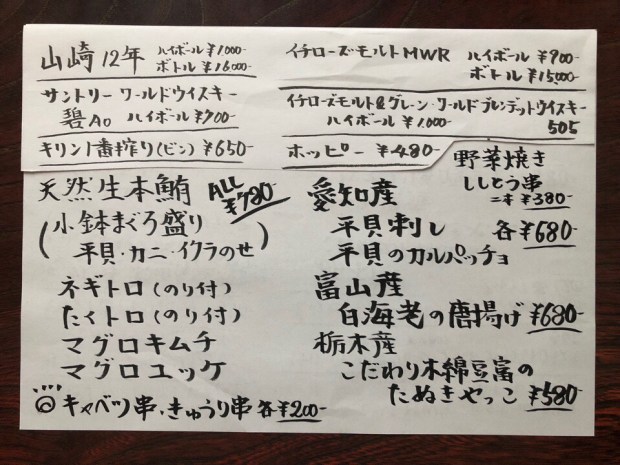 山崎12年 ハイボール ¥1000-
ボトル ¥16000-
サントリー ワールドウイスキー
碧Ao ハイボール ¥700-
キリン1番搾り(ビン) ¥650-
イチローズモルトMWR ハイボール ¥900-
ボトル ¥15,000-
イチローズモルト&グレーン・ワールドブレンデットウイスキー
ハイボール ¥1,000- 505
ホッピー ¥480-
野菜焼き
ししとう串
二本 ¥380-
天然生本鮪 ALL ¥780-
(小鉢まぐろ盛り
平貝・カニ・イクラのせ)
ネギトロ(のり付)
たくトロ(のり付)
マグロキムチ
マグロユッケ
◎キャベツ串・きゅうり串 各¥200-
愛知産
平貝刺し 各¥680-
平貝のカルパッチョ
富山産
白海老の唐揚げ ¥680-
栃木産
こだわり木綿豆富の
たぬきやっこ ¥580-